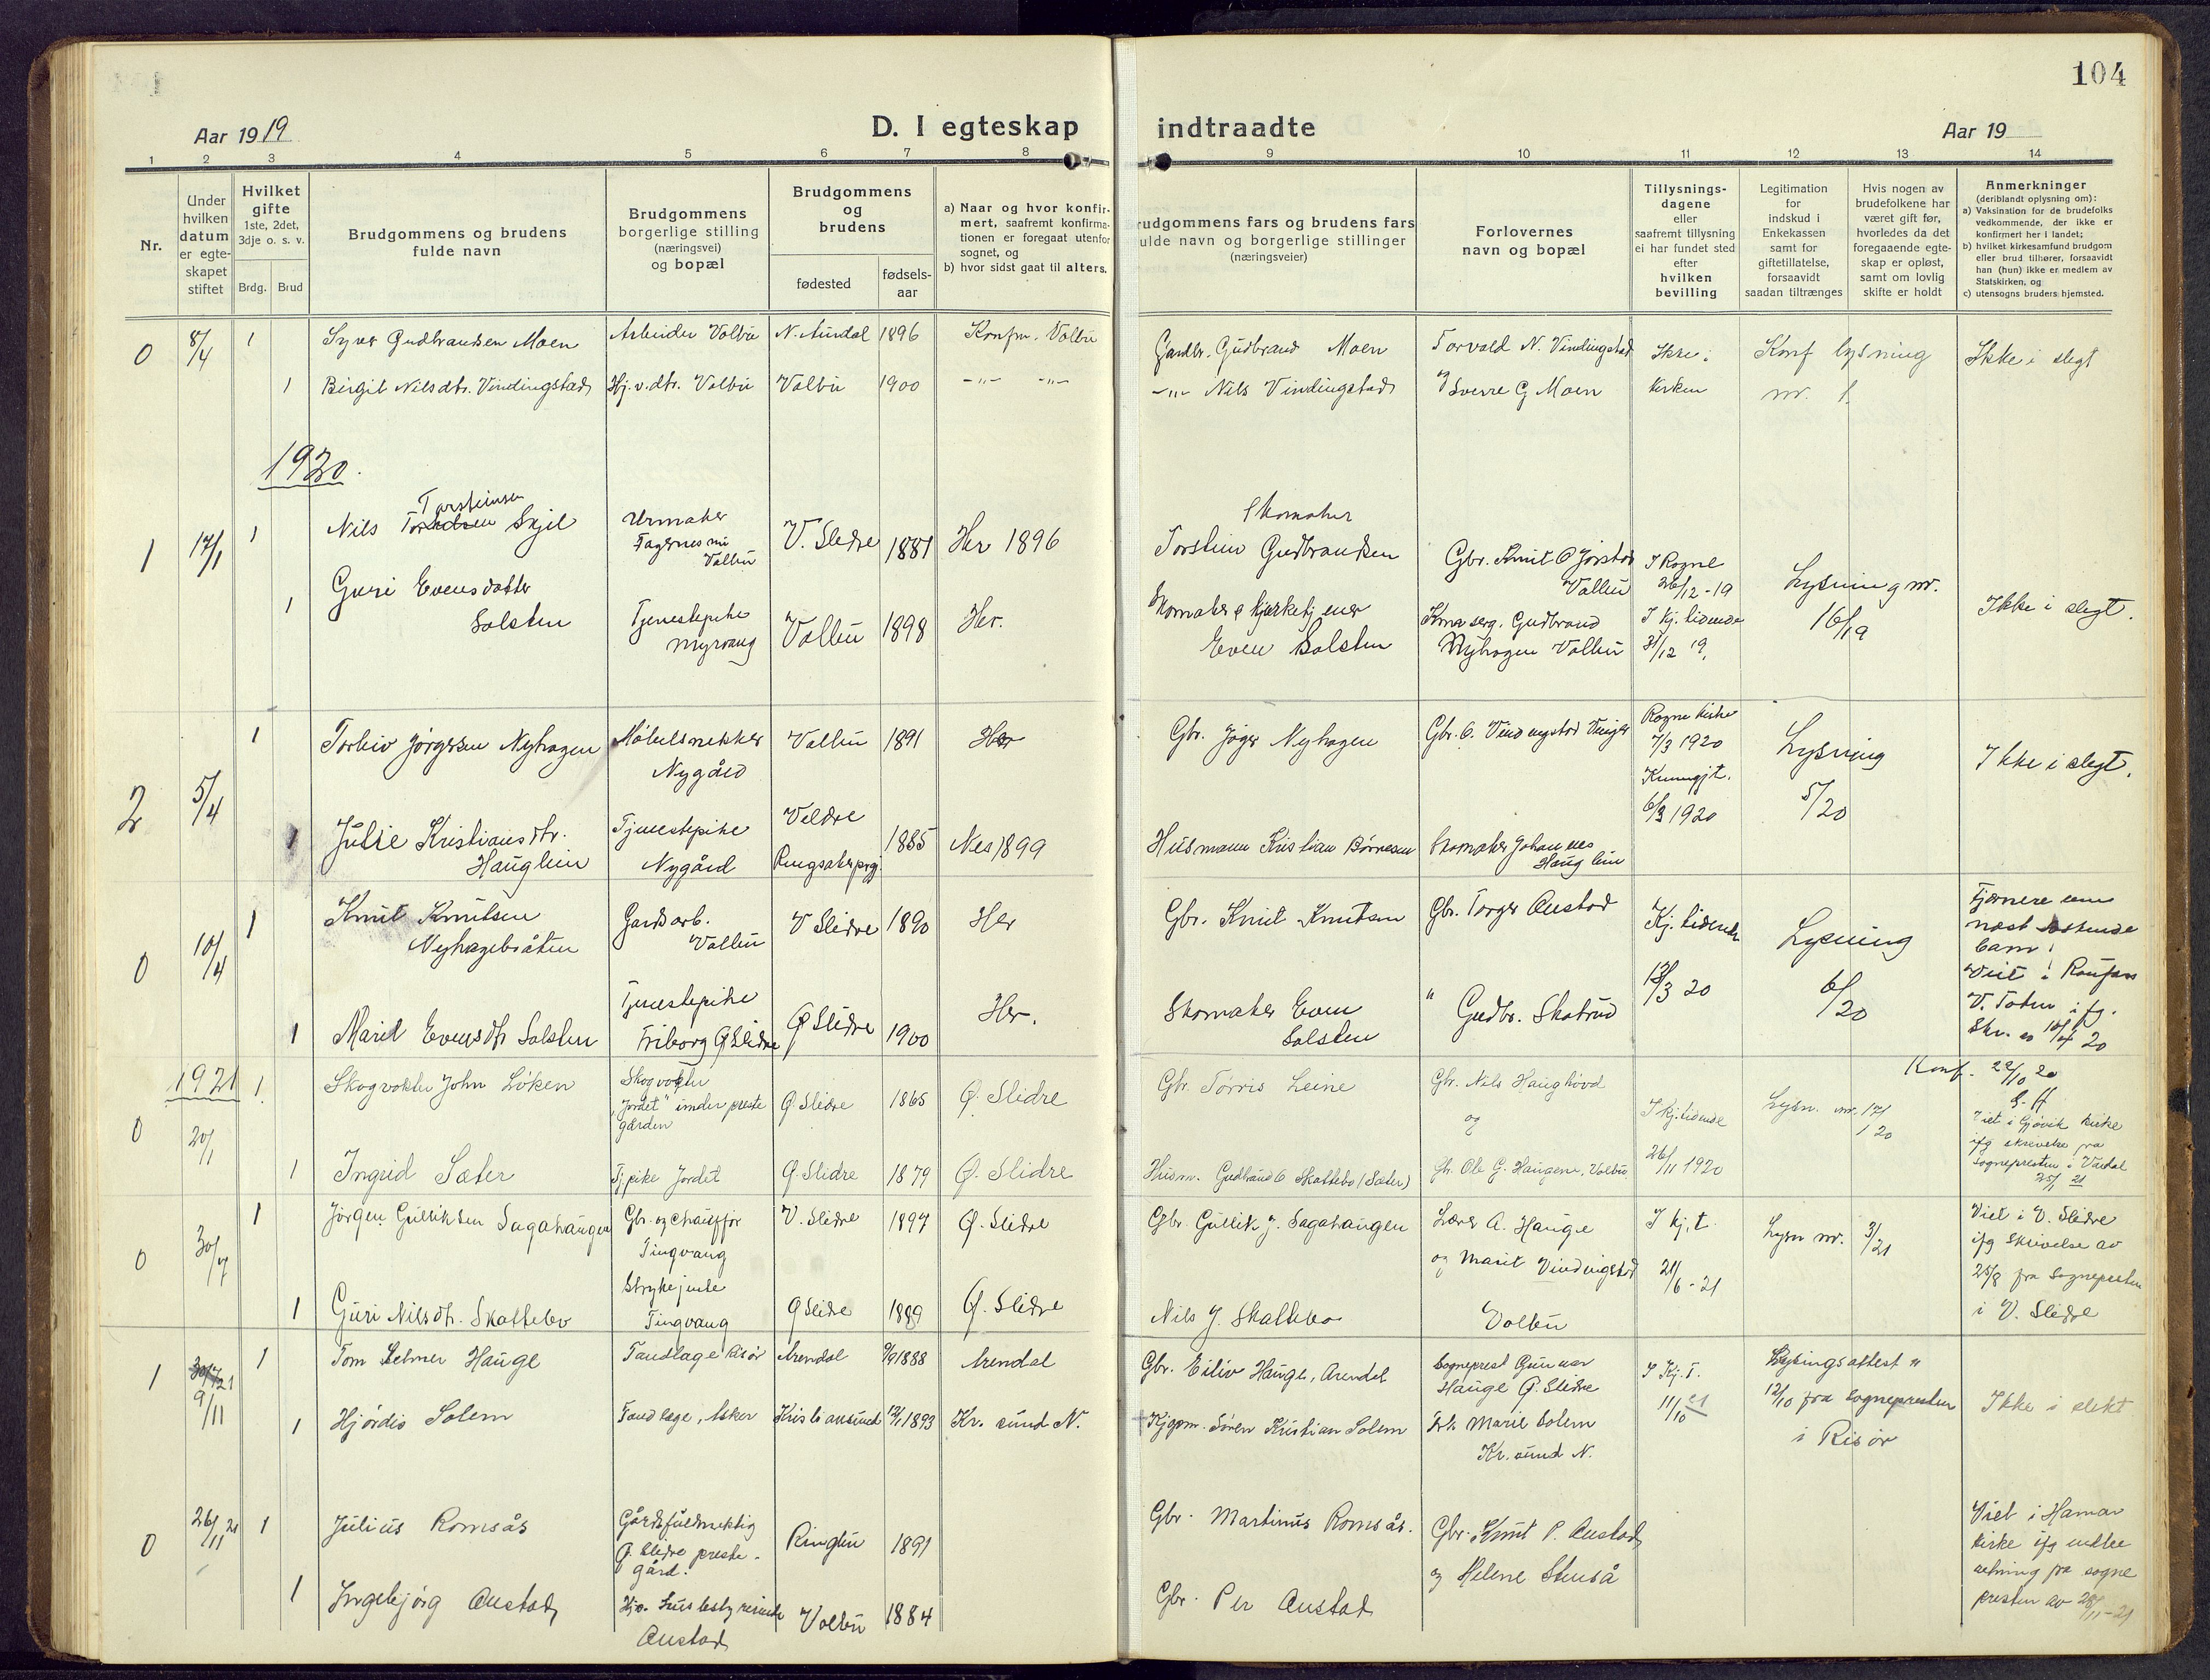 104
Aar 1919
D. I egteskap indtraadte
Aar 19
1 2 3 4 5 6 7 8 9 10 11 12 13 14
Nr.
Under
hvilken
datum
er egte-
skapet
stiftet
Hvilket
gifte
1ste, 2det,
3dje o. s. v.
Brdg. Brud
Brudgommens og brudens
fulde navn
Brudgommens
borgerlige stilling
(næringsvei)
og bopæl
Brudgommens
og
brudens
fødested
fødsels-
aar
a) Naar og hvor konfir-
mert, saafremt konfirma-
tionen er foregaat utenfor
sognet, og
b) hvor sidst gaat til alters.
rudgommens fars og brudens fars
ulde navn og borgerlige stillinger
(næringsveier)
Forlovernes
navn og bopæl
Tillysnings-
dagene
eller
saafremt tillysning
ei har fundet sted
efter
hvilken
bevilling
Legitimation
for
indskud i
Enkekassen
samt for
giftetillatelse,
forsaavidt
saadan tiltrænges
Hvis nogen av
brudefolkene har
været gift før,
hvorledes da det
foregaaende egte-
skap er opløst,
samt om lovlig
skifte er holdt
Anmerkninger
(deriblandt oplysning om):
a) Vaksination for de brudefolks
vedkommende, der ikke er
konfirmert her i landet;
b) hvilket kirkesamfund brudgom
eller brud tilhører, forsaavidt
han (hun) ikke er medlem av
Statskirken, og
c) utensogns bruders hjemsted.
0 8/4 1 Syver Gudbrandsen Moen Arbeider Volbu N. Aurdal 1896 Konfm. Volbu Gardbr. Gudbrand Moen Torvald N. Vindingstad Ikke i Konf lysning Ikke i slegt
1 Birgit Nilsdtr. Vindingstad Hj.v.dtr. Volbu Volbu 1900 -"- -"- -"- Nils Vindingstad og Sverre G Moen kirken nr. 1.
1920.
Torsteinsen
1 17/1 1 Nils Skjel Urmaker
Fagernes nu
Volbu
V. Slidre 1881 Her 1896
Skomaker
Torstein Gudbrandsen
Gbr. Knut O Jørstad
Volbu
I Rogne
26/12-19
Lysning nr.
16/19
Ikke i slegt.
1 Guri Evensdatter
Solsten
Tjenestepike
Myrvang
Volbu 1898 Her.
Skomaker & kjørketjener
Even Solsten
Gudbrand
Nyhagen Volbu
I kj. tidende
31/12 19.
2 5/4 1 Torleiv Jørgersen Nyhagen Møbelsnekker
Nygård
Volbu 1891 Her Gbr. Jøger Nyhagen
Rogne kirke
7/3 1920
Kunngjt.
6/3 1920
Lysning
5/20
Ikke i slegt.
1 Julie Kristiansdtr.
Hauglien
Tjenestepike
Nygård
Veldre
Ringsaker prgj.
1885 Nes 1899 Husmann Kristian Børresen Skomaker Johannes
Hauglien
0 10/4 1 Knut Knutsen
Nyhagebråten
Gardsarb.
Volbu
V Slidre 1890 Her Gbr. Knut Knutsen Gbr. Torger Austad
Kj. tidende
13/3 20
Lysning
6/20
Fjernere enn
næst søskende
barn!
Viet i Raufoss
V. Toten ifg.
Skr. av 10/4 20
1 Marit Evensdtr Solsten Tjenestepike
Friborg Ø Slidre
Ø Slidre 1900 Her. Skomaker Even
Solsten
" Gudbr. Skatrud
1921
0 20/1 1 Skogvokter John Løken Skogvokter
"Jordet" under preste
gården
Ø. Slidre 1865 Ø. Slidre Gbr. Tørris Leine Gbr. Nils Haughovd
og
I kj. tidende
26/11 1920
Lysn. nr. 17/
1 20
Konf. 22/10 20
Viet i Gjøvik kirke
ifg skrivelse fra
sognepresten i Vardal
25/1 21
1 Ingrid Sæter Tj. pike Jordet Ø Slidre 1879 Ø. Slidre Husm. Gudbrand O Skattebo (Sæter) Gbr. Ole G. Haugene, Volbu
0 30/7 1 Jørgen Gulliksen Sagahaugen Gbr. og chauffør
Tingvang
V. Slidre 1897 Ø. Slidre Gbr. Gullik J. Sagahaugen Lærer A. Hauge
og Marit Vindingstad
Volbu
I kj. t.
21/6-21
Lysn nr. 3/21
Viet i V. Slidre
ifg skrivelse av
25/8 fra sognepresten
i V. Slidre
1 Guri Nilsdtr. Skattebo Strykejente
Tingvang
Ø Slidre 1889 Ø. Slidre Nils J. Skattebo
1 9/11 1 Tom Selmer Hauge Tandlæge Risør Arendal 1888 Arendal Gbr. Eiliv Hauge, Arendal Sogneprest Gunnar
Hauge Ø. Slidre
I Kj. T.
11/10 21
Lysingsattest
12/10 fra sognepresten
i Risør
Ikke i slekt
1 Hjørdis Solem Tandlæge, Asker Kristiansund 1893 Kr. sund N. Kjøpm. Søren Kristian Solem Frk Marie Solem
Kr. sund N.
0 26/11 21 1 Julius Romsås Gårdsfuldmektig
Ø. Slidre preste-
gård.
Ringebu 1891 Gbr. Martinus Romsås. Gbr. Knut P. Austad
og Helene Stenså
Viet i Hamar
kirke ifg
fra sogne
presten av 28/11-21
1 Ingebjørg Austad
Austad
Volbu 1884 Gbr. Per Austad